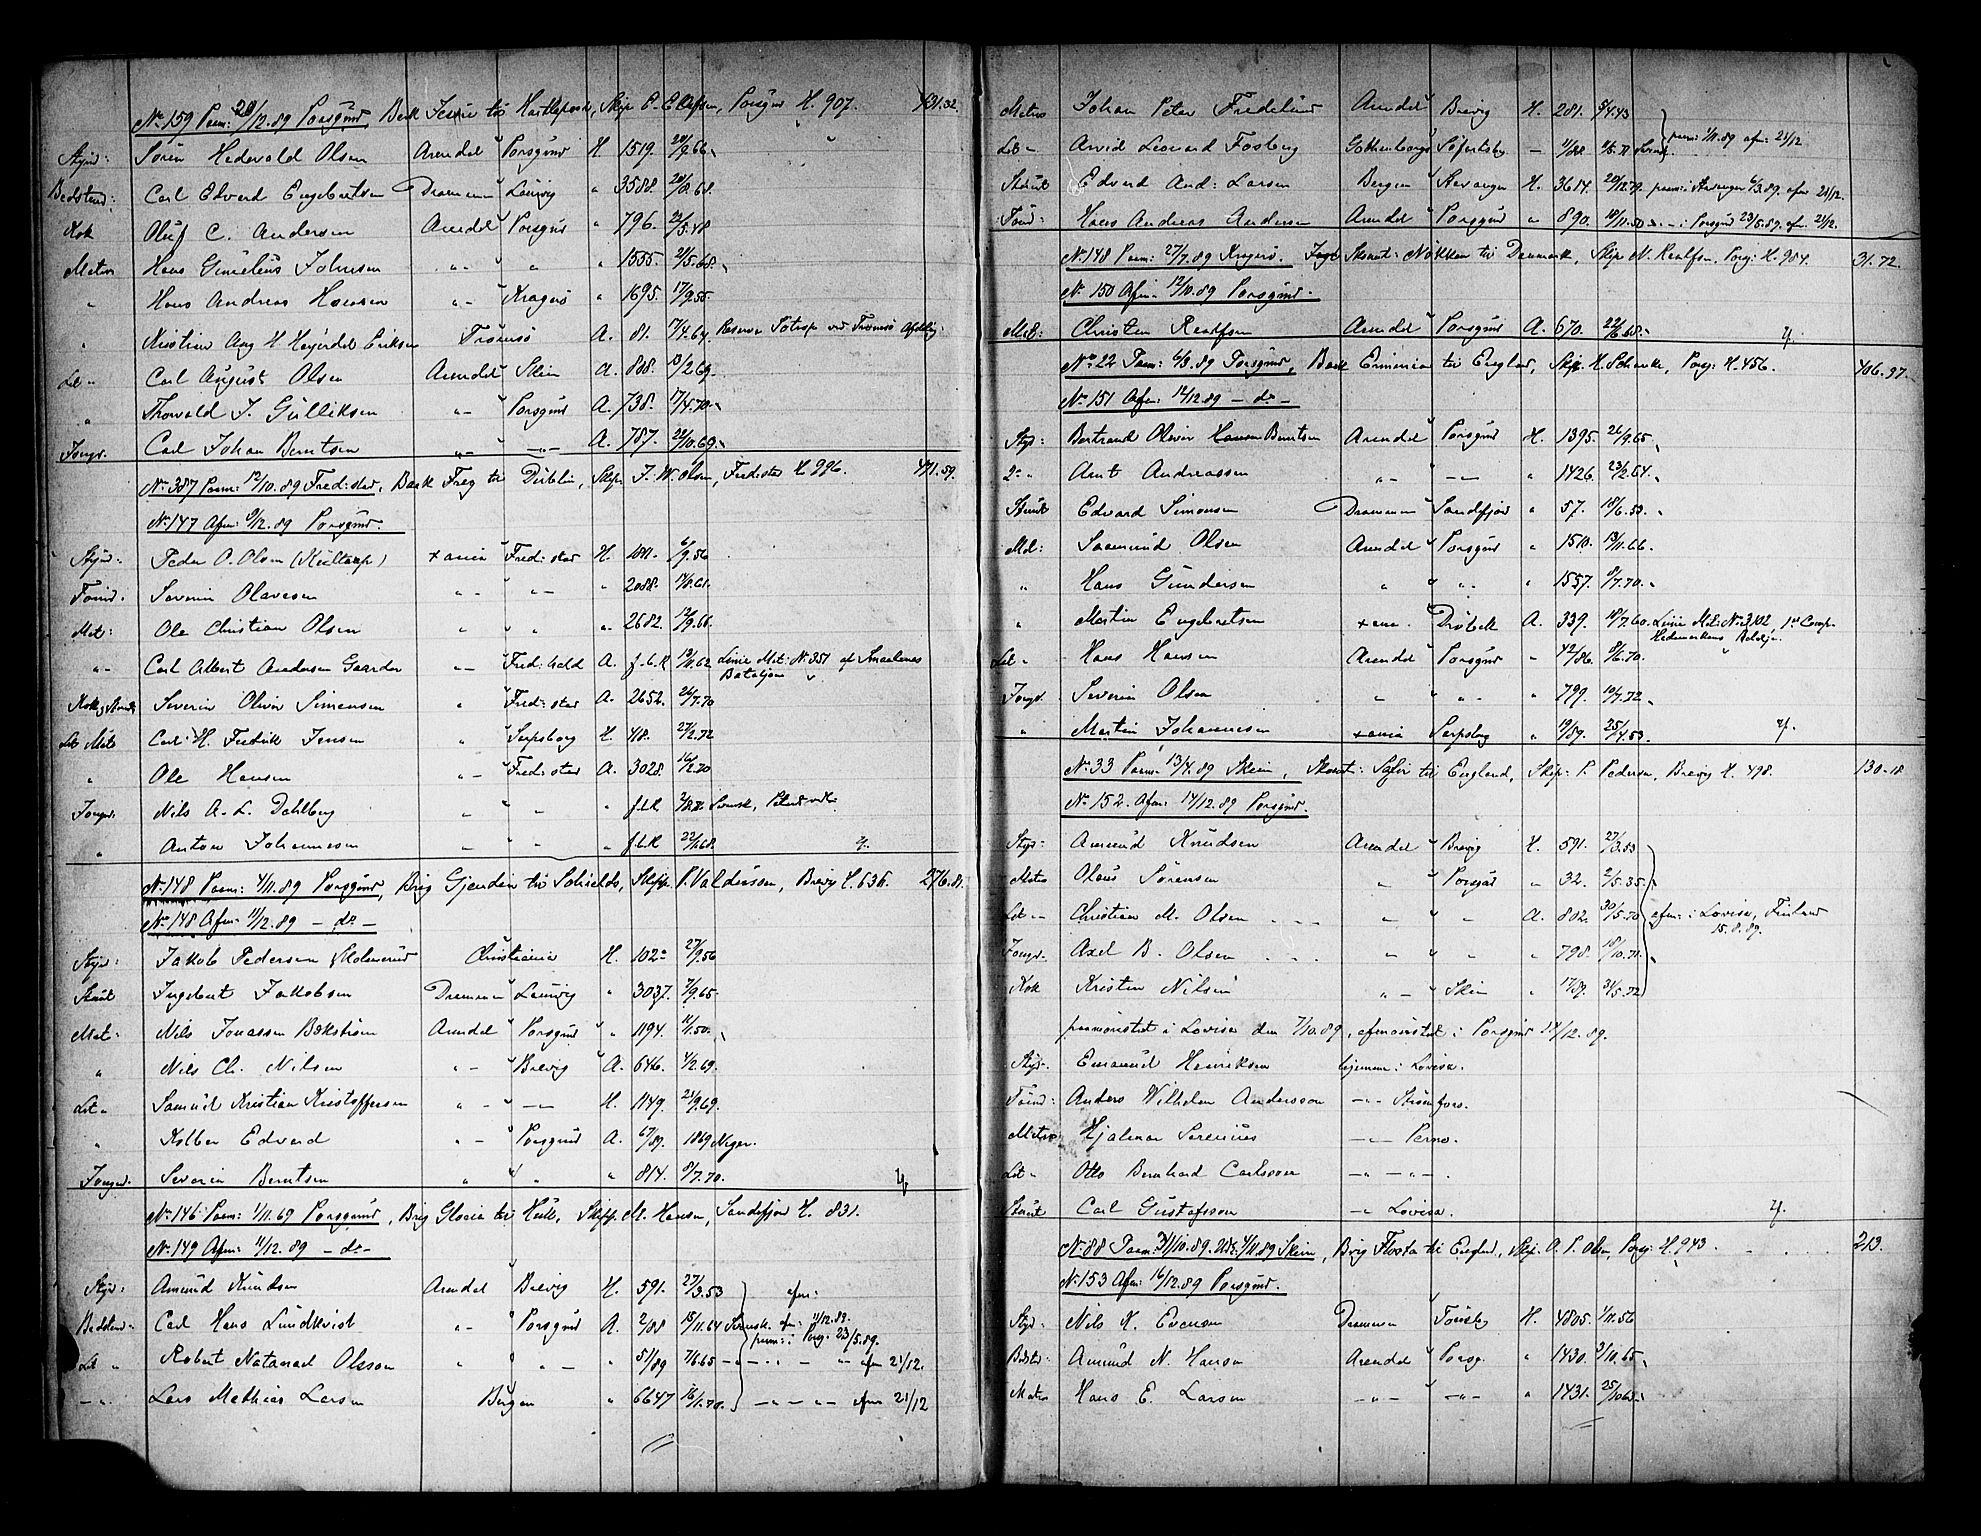 No 159 Paam: 20/12.89 Porsgrund, Bark Jessie til Hartlepool, Skip P. Ellefsen, Porsgr. H. 907.
Styrd: Sören Hedevald Olsen Arendal Porsgrund H. 1519.
Bedstmd: Carl Edvard Engebretsen Drammen Laurvig " 3588.
Kok Oluf C. Andersen Arendal Porsgrd " 796. 22/5.48
Matros Hans Gunelius Johnsen " - " " 1555 21/5.68.
" Hans Andreas Hansen " - Kragerö " 1695. 17/9.55.
" Kristian Aug H Heyerdal Eriksen Tromsö A. 81. 17/4.64. Reserve ved Tromsö Afdeling
Let " Carl August Olsen Arendal Skien A. 888. 13/2.69.
" Thorvald J. Gulliksen " - Porsgrund A. 738. 17/4.70.
Jongd. Carl Johan Berntsen " - - " - A. 787. 22/10.69.
No 387 Paam: 12/10.89 Fredrstad, Bark Freg til Dublin, Skip. J. W. Olsen, Fredrstad H. 226. 491.59.
No 147 Afm: 9/12.89 Porsgrund.
Styrd: Peder O. Olsen Xania Fredrstad H. 1811. 6/9.56
Tömd. Severin Olavesen " - " - " 2088.
Mat: Ole Christian Olsen " " " 2682. 12/9.66.
" - Carl Albert Andersen Gaarder " - Fredr.hald A. f.b.R Linie Mat: No. 351 af Smaalenes Bataljon
Kok & Stuert Severin Oliver Simensen " Fredr.stad A. 2652. 26/7.70
Let Mat Carl H. Fredrik Jensen " Sarpsborg H. 418. 27/2.72
" Ole Hansen " - Fredr.stad A. 3028. 16/2.70
Jongd: Nils A. L. Dahlberg " " " f.b.R Svensk,
" Anton Johannesen " " - " f.b.R 22/1.68.
No 148 Paam: 4/11.89 Porsgrund, Brig Gjendin til Schields, Skipp. P. Valdersen, Brevig H. 636. 276.81.
No 148 Afm: 11/12.89 - do -
Styrd: Jakob Pedersen Holmerud Christiania H. 102 27/9.56
Stuert Ingebert Jakobsen Drammen Laurvig " 3037. 7/9.65.
Mat. Nils Jonassen Bokström Arendal Porsgrund " 1194. 11/1.50.
" Nils Ch. Nilsen " - Brevig A. 646. 4/2.69.
Let " Samuel Kristian Kristoffersen " - " - - H. 1149. 21/9.69.
" Kolben Edvard " - Porsgrund A. 67/89. 1869 Neger.
Jongd. Severin Berntsen " " " 814. 9/7.70.
No 146 Paam: 1/11.69 Porsgrund, Brig Gloria til Hull, Skipp. M. Hansen, Sandefjord H. 831.
No 149 Afm: 11/12.89 - do -
Styrd: Amund Knudsen Arendal Brevig H. 591. 27/3.53 afm:
Bedstmd. Carl Hans Lundkvist " - Porsgrund A. 2/88 15/11.64 Svensk. afm: 11/12.89. paam: i Porsg: 23/5.89.
Let " Robert Natanael Olsson " " - " 51/89 7/6.65 - " - " - " afm 21/12.
- " - Lars Mathias Larsen Bergen " 6647 16/1.70. - " - " - afm 21/12
Matros Johan Peter Fredelund Arendal Brevig H. 281. 5/4.43
Let " Arvid Leonard Fosberg Gothenborgs - 11/88 Svensk. paam: 1/11.89 afm: 21/12
Stuert Edvard And: Larsen Bergen Stavanger H. 3614. 20/12.79. paam: i Stavanger 6/3.89. afm 21/12.
Tömd: Hans Andreas Andersen Arendal Porsgrd " 890. - " - i Porsgrd 23/5.89. afm. 21/12.
No 148 Paam: 27/7.89 Kragerö. Jagt Skonnt: Nökken til Danmark, Skip N. Realfsen, Porsg: H. 984. 31.72.
No 150 Afm: 12/10.89 Porsgrund.
Mat: Christen Realfsen Arendal Porsgrund A. 670. 22/6.68.
No 22 Paam: 6/3.89 Porsgrund, Bark Erminia til England, Skip. H. Schanke, Porsg: H. 456. 406.97.
No 151 Afm: 12/12.89 - do -
Styrd: Bertrand Oliver Hansen Berntsen Arendal Porsgrund H. 1395. 26/9.65.
2 " Arnt Andreassen " - - " - " 1426. 23/2.64.
Stuert Edvard Simonsen Drammen Sandefjord " 57. 18/6.53.
Mat: Saamund Olsen Arendal Porsgrund " 1510. 13/11.66.
" Hans Gundersen " " " 1557. 9/7.70.
" Martin Engebretsen Xania. Dröbak A. 339. 18/7.60. Linie Mat: No 302 1ste Comp. Hedemarkens Bataljon
Let " Hans Hansen Arendal Porsgrund " 42/86. 9/6.70.
Jongd. Severin Olsen " " " - " 799. 19/7.72.
" Martin Johannesen Xania Sarpsborg " 19/89. 25/4.53.
No 33 Paam: 13/4.89 Skien, Skonnt: Safir til England, Skip: P. Pedersen, Brevig H. 498. 130.18.
No 152. Afm: 14/12.89 Porsgrund.
Styrd: Amund Knudsen Arendal Brevig H. 591. 27/3.53
Matros Olaus Sörensen " Porsgrd " 32. 2/5.35.
Let " - Christian M. Olsen " " " A. 802. 30/5.70 afm: i Lovisa, Finland 15.8.89.
Jongd. Axel B. Olsen " " " 798. 18/10.71.
Kok Kristen Nilsen " - Skien " 17/89. 31/5.72
paamönstret i Lovisa den 7/10.89, afmönstret i Porsgrund 14/12.89.
Styrd. Emanuel Henriksen hjemme i Lovisa.
Tömd: Anders Wilhelm Andersson - " - Strömfors.
Matros Hjalmar Serenius - " - Perno.
Let " Otto Bernhard Carlsson - " - " -
Stuert Carl Gustafsson - " Lovisa.
No 88 Paam: 31/10.89. Uds: 4/11.89 Skien, Brig Flosta til England, Skip. O. P. Olsen, Porsg: H. 943. 213.
No 153 Afm: 16/12.89 Porsgrund.
Styrd: Nils K. Evensen Drammen Tönsb. H. 4805. 1/11.56
Bedstm: Amund N. Hansen Arendal Porsg. " 1430. 2/10.65.
Matros Hans E. Larsen - " - - " - " 1431.